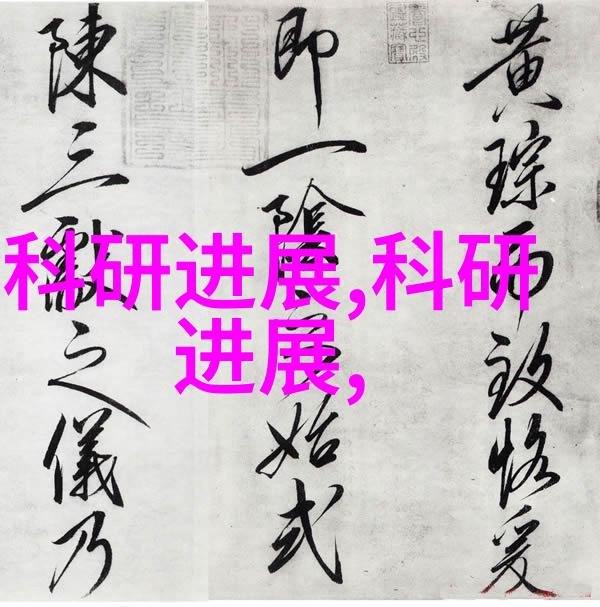 科研进展,科研
进展,
黄琮而致恪爰
即一陰始式
陳三獻之儀乃